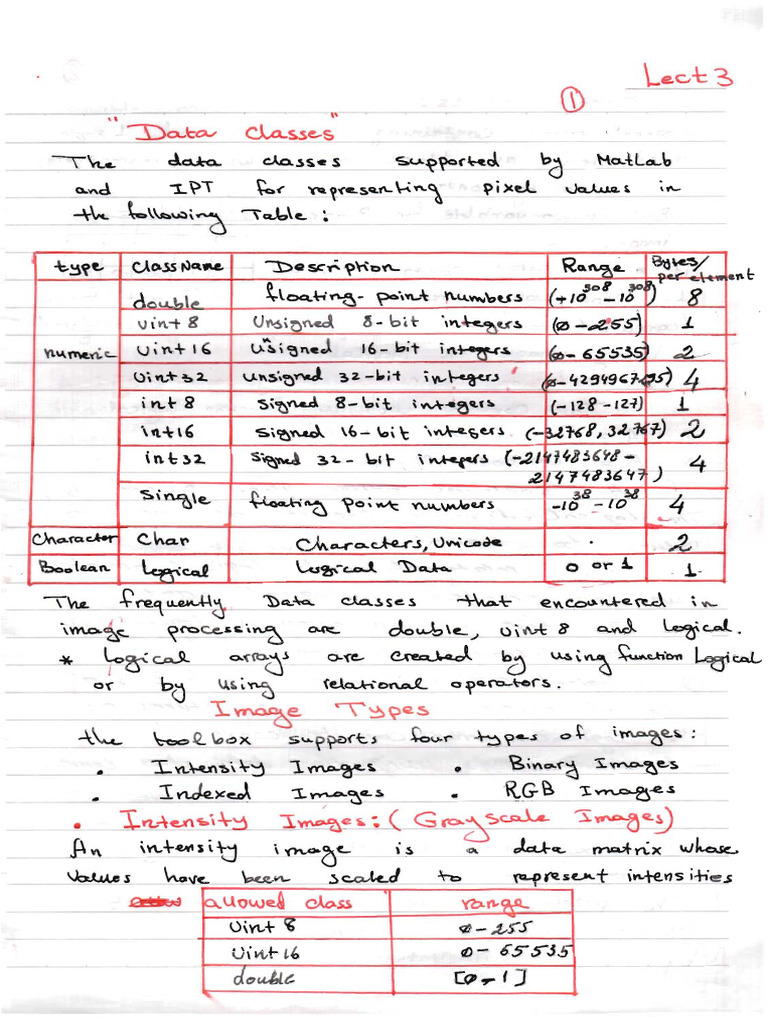 Lect 3
①
"Data classes"
The data classes supported by MatLab
and IPT for representing pixel values in
the following Table :
type className Description Range Bytes/per element
numeric double floating-point numbers (+10^308 – 10^308) 8
uint 8 Unsigned 8-bit integers (0 – 255) 1
uint 16 usigned 16-bit integers (0 – 65535) 2
uint 32 unsigned 32-bit integers 4
int 8 signed 8-bit integers (-128 - 127) 1
int16 signed 16-bit integers. (-32768, 32767) 2
int 32 signed 32-bit integers (-2147483648 – 2147483647) 4
single floating point numbers -10^38 – 10^38 4
Character Char Characters, Unicode . 2
Boolean Logical Logical Data 0 or 1 1
The frequently Data classes that encountered in
image processing are double, uint 8 and Logical.
* Logical arrays are created by using function Logical
or by using relational operators.
Image Types
the toolbox supports four types of images :
• Intensity Images • Binary Images
• Indexed Images • RGB Images
• Intensity Images: (Grayscale Images)
An intensity image is a data matrix whose
values have been scaled to represent intensities
allowed class range
Uint 8 0 – 255
Uint 16 0 – 65535
double [0 – 1]